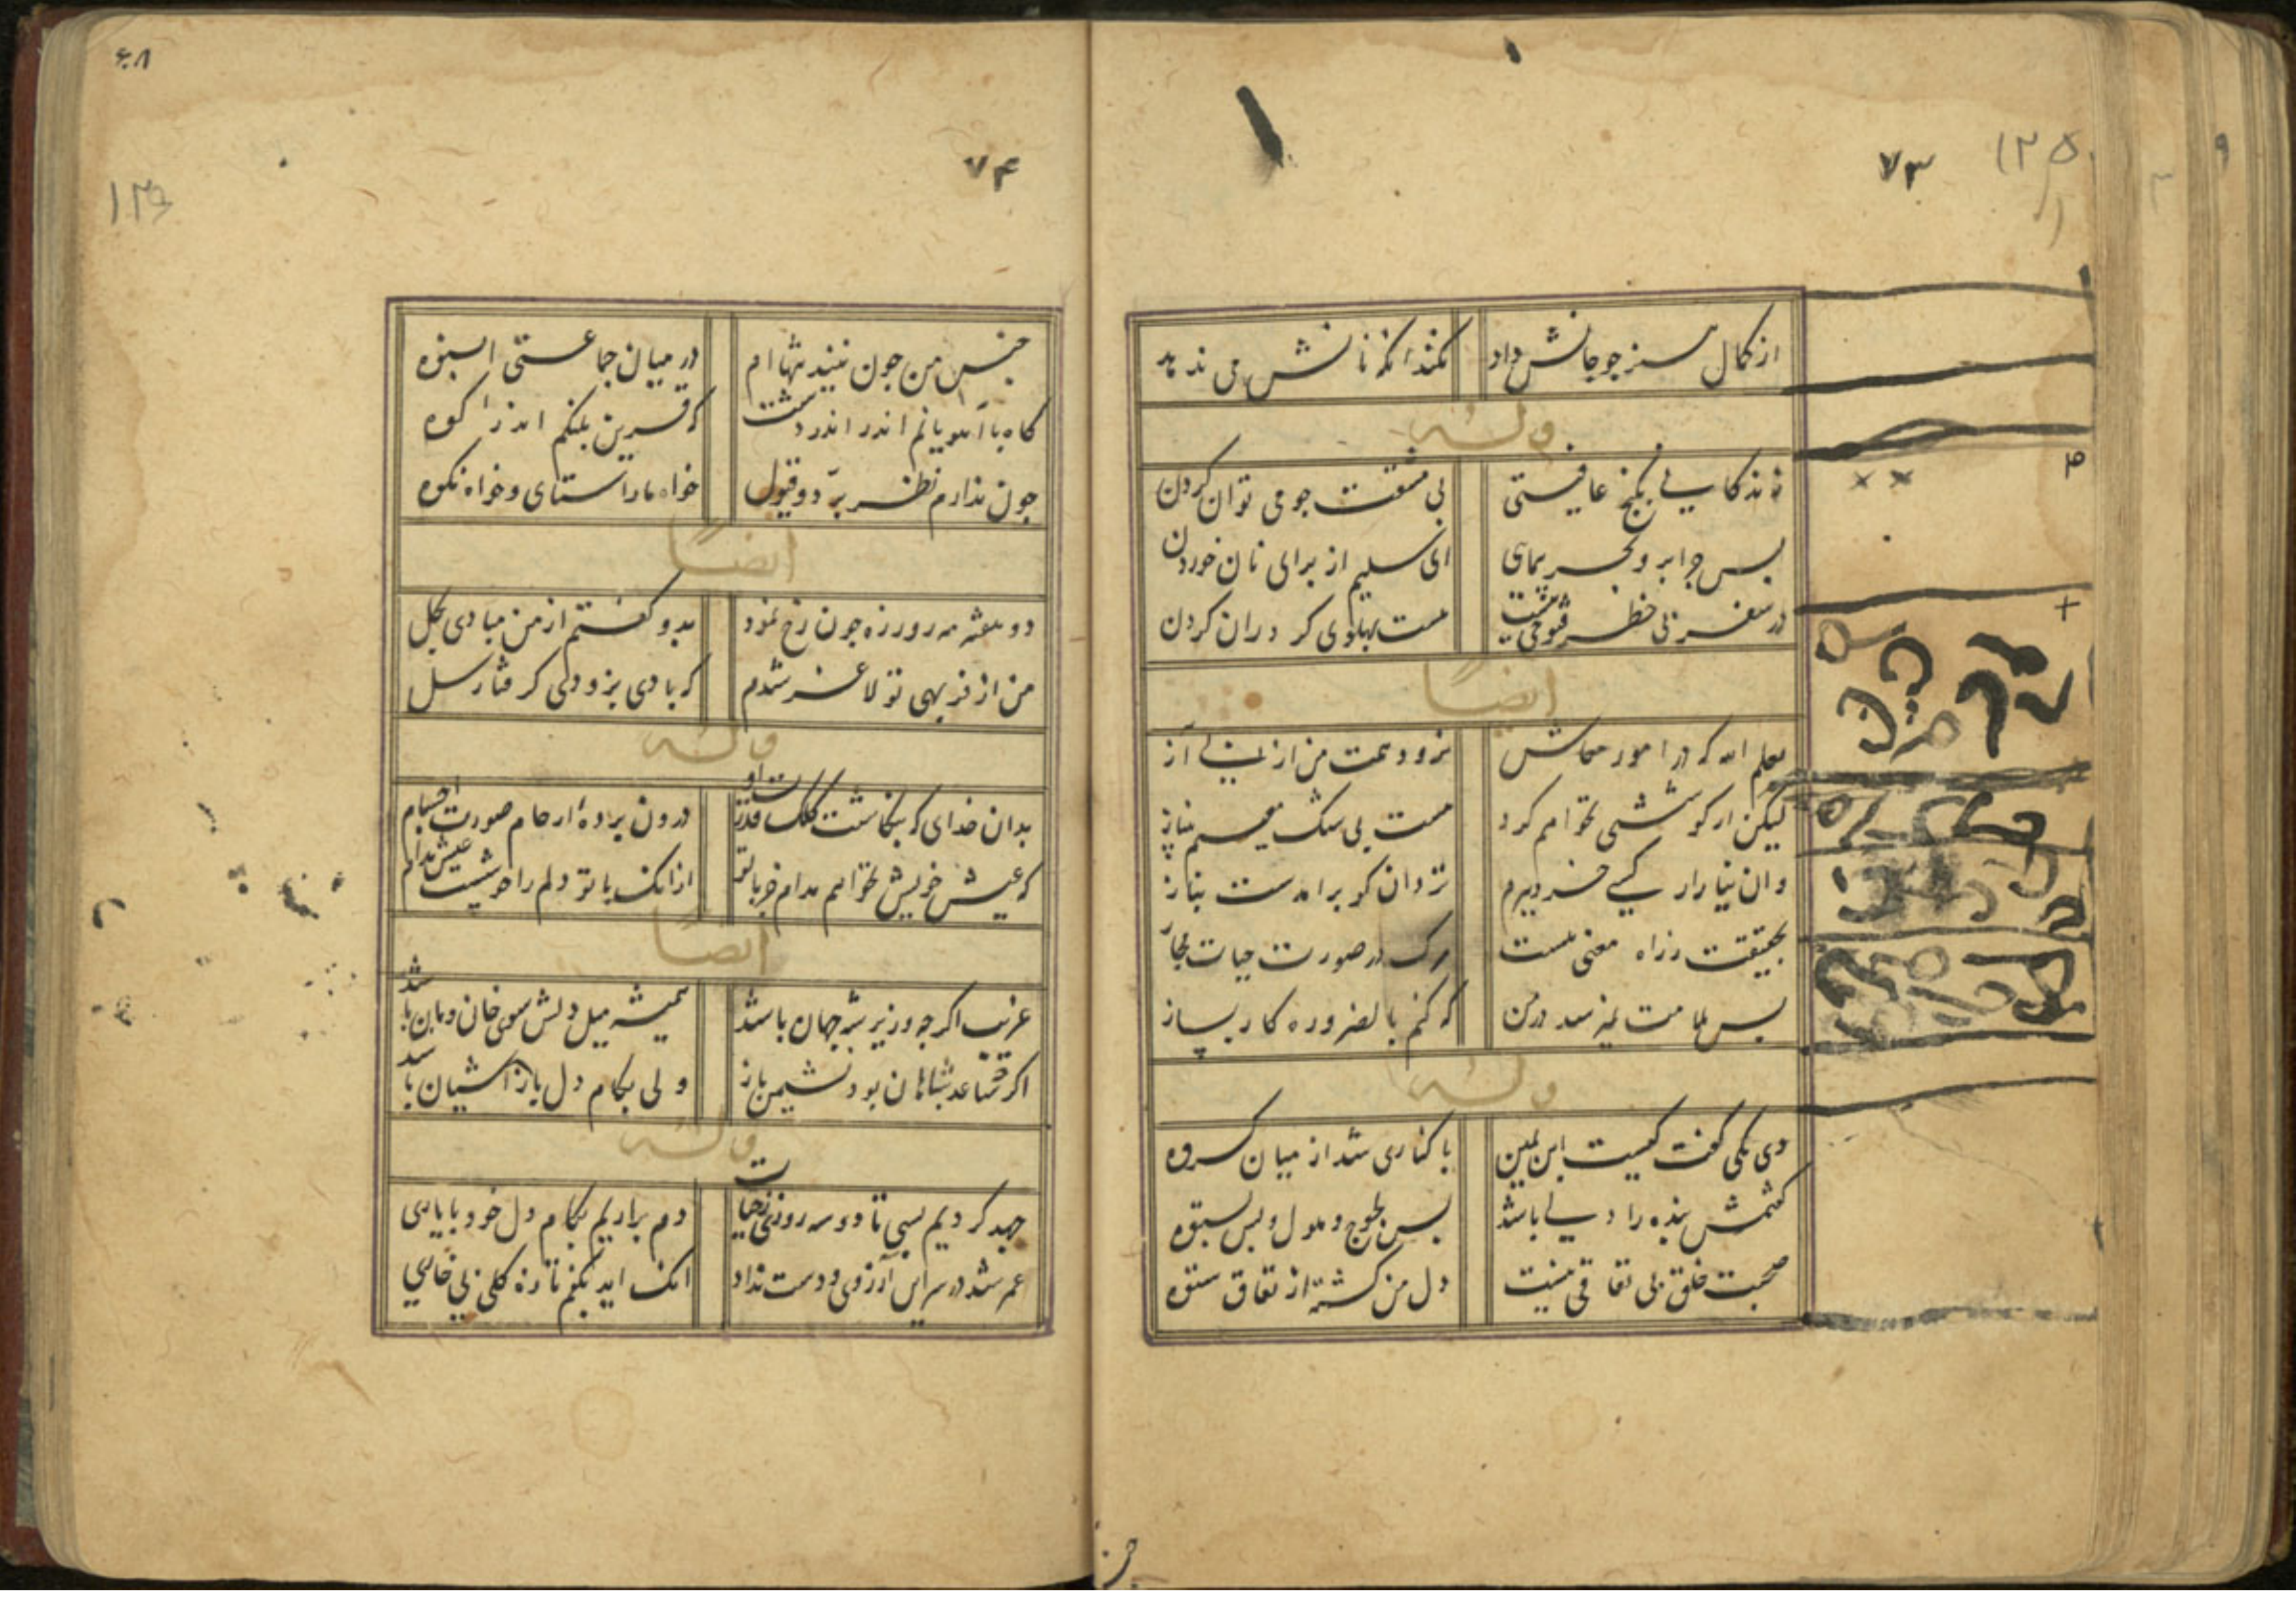 ۷۳
۱۲۵
از کمال هنر چو جانش داد
نکند آنکه نانش می ندهد
وله
بی مشقت چو می توان کردن
بس چرا بر و بحر پیمای
ای سلیم از برای نان خوردن
در سفر بی خطر
هست پهلوی کر دران کردن
ایضا
یعلم الله که در امور معاش
نزود همت من از پی آز
لیکن ار کوششی نخواهم کرد
هست بی شک بچیزم نیاز
وان نیاز ار کسی
بحقیقت ز راه معنی هست
مرک در صورت حیات مجاز
بس ملامت نمیرسد در من
که کنم بالضروره کار بساز
وله
دی یکی گفت کیست ابن یمین
با کناری شد از میان کروه
گفتمش بنده را دلی باشد
بس لجوج و ملول و بس نستوه
صحبت خلق بی نفاقی نیست
دل من کشته از نفاق ستوه
چن
۶۰۸
۷۴
جنس من چون نیند تنها ام
در میان جماعتی انبوه
گاه با آهویانم اندر دشت
که قرین پلنکم اندر کوه
چون ندارم نظر برد و قبول
خواه ما را ستای و خواه نکوه
ایضا
دو هفته مه روزه چون رخ نمود
بدو گفتم از من مبادی بحل
من از فربهی تو لاغر شدم
که بادی بزودی گرفتار سل
وله
بدان خدای که بنگاشت کلک قدرت او
درون پرده ارحام صورت اجسام
که عیش خویش نخواهم مدام جز با تو
از انک با تو دلم را خوشست عیش مدام
ایضا
غریب اگر چه وزیر شه جهان باشد
همیشه میل دلش سوی خان و مان باشد
اگر چه ساعد شاهان بود نشیمن باز
ولی بکام دل باز آشیان باشد
وله
جهد کردیم بسی تا دو سه روزی ز حیات
دم براریم بکام دل خود با یاری
عمر شد در سر این آرزوی و دست نداد
انک اید بکفم تازه گلی بی خاری